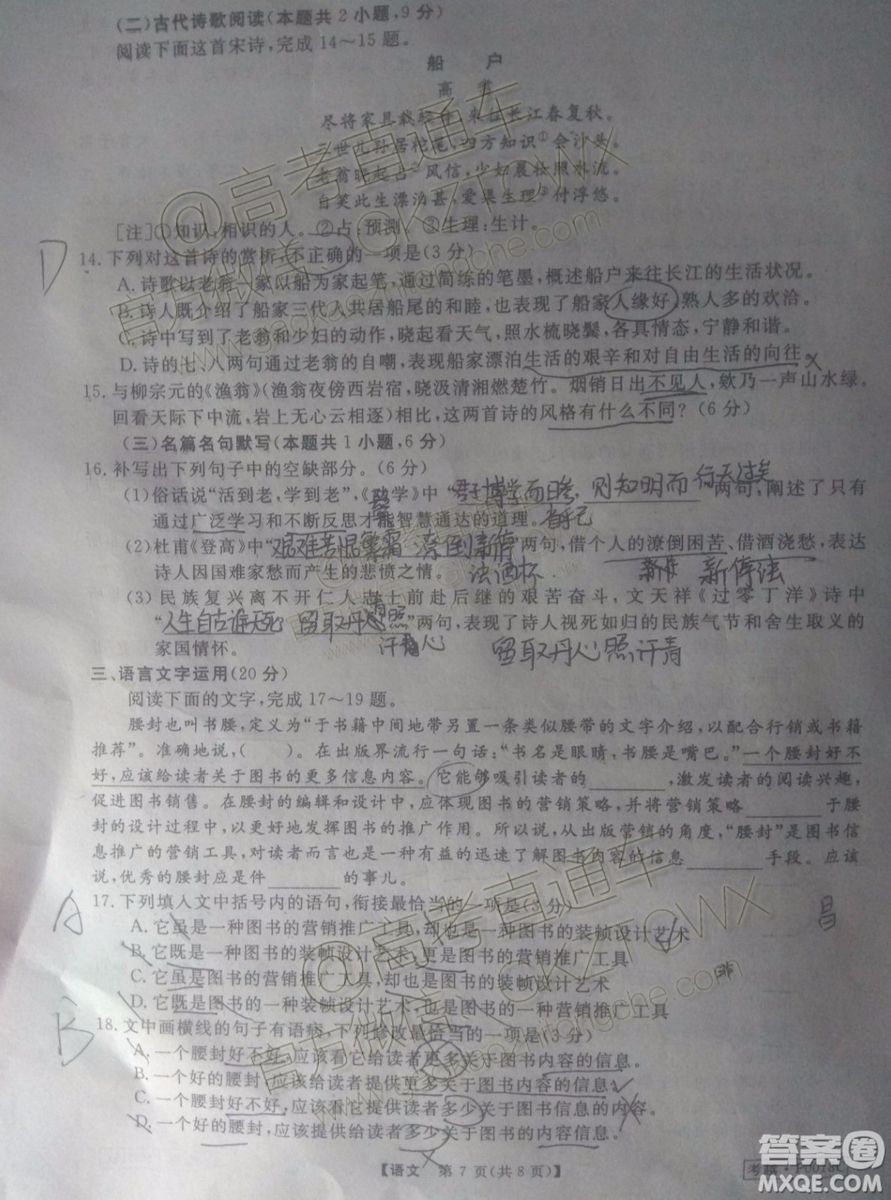 (二)古代诗歌阅读(本题共2小题,9分)
阅读下面这首宋诗,完成14～15题。
船 户
高
尽将家具载 来往长江春复秋。
三世儿孙居 尾,四方知识①会沙头。
老翁晓起占②风信,少妇晨妆照水流。
自笑此生漂泊甚,爱渠生理③付浮悠。
[注]①知识:相识的人。②占:预测。③生理:生计。
D
14.下列对这首诗的赏析,不正确的一项是(3分)
A.诗歌以老翁一家以船为家起笔,通过简练的笔墨,概述船户来往长江的生活状况。
B.诗人既介绍了船家三代人共居船尾的和睦,也表现了船家人缘好,熟人多的欢洽。
C.诗中写到了老翁和少妇的动作,晓起看天气,照水梳晓鬓,各具情态,宁静和谐。
D.诗的七、八两句通过老翁的自嘲,表现船家漂泊生活的艰辛和对自由生活的向往。
15.与柳宗元的《渔翁》(渔翁夜傍西岩宿,晓汲清湘燃楚竹。烟销日出不见人,欸乃一声山水绿。
回看天际下中流,岩上无心云相逐)相比,这两首诗的风格有什么不同?(6分)
(三)名篇名句默写(本题共1小题,6分)
16.补写出下列句子中的空缺部分。(6分)
(1)俗话说“活到老,学到老”。《劝学》中“君子博学而日 则知明而行无过矣 两句,阐述了只有
通过广泛学习和不断反思才能智慧通达的道理。 参 省乎己
(2)杜甫《登高》中“艰难苦恨繁霜 潦倒新停 两句,借个人的潦倒困苦、借酒浇愁,表达
诗人因国难家愁而产生的悲愤之情。 浊酒杯 新停
(3)民族复兴离不开仁人志士前赴后继的艰苦奋斗,文天祥《过零丁洋》诗中
“人生自古谁无死 留取丹心照 两句,表现了诗人视死如归的民族气节和舍生取义的
家国情怀。 汗青 心 留取丹心照汗青
三、语言文字运用(20分)
阅读下面的文字,完成17～19题。
腰封也叫书腰,定义为“于书籍中间地带另置一条类似腰带的文字介绍,以配合行销或书籍
推荐”。准确地说,( )。在出版界流行一句话:“书名是眼睛,书腰是嘴巴。”一个腰封好不
好,应该给读者关于图书的更多信息内容。它能够吸引读者的________,激发读者的阅读兴趣,
促进图书销售。在腰封的编辑和设计中,应体现图书的营销策略,并将营销策略________于腰
封的设计过程中,以更好地发挥图书的推广作用。所以说,从出版营销的角度,“腰封”是图书信
息推广的营销工具,对读者而言也是一种有益的迅速了解图书内容的信息________手段。应该
说,优秀的腰封是件________的事儿。
A
17.下列填入文中括号内的语句,衔接最恰当的一项是(3分)
A.它虽是一种图书的营销推广工具,却也是一种图书的装帧设计艺术
B.它既是一种图书的装帧设计艺术,更是图书的营销推广工具
C.它虽是图书的营销推广工具,却也是图书的一种装帧设计艺术
D.它既是图书的一种装帧设计艺术,也是一种图书的营销推广工具
B
18.文中画横线的句子有语病,下列修改最恰当的一项是(3分)
A.一个腰封好不好,应该看它给读者更多关于图书内容的信息。
B.一个好的腰封,应该给读者提供更多关于图书内容的信息。
C.一个腰封好不好,应该看它给读者多少关于图书信息的内容。
D.一个好的腰封,应该提供给读者多少关于图书内容的信息。
【语文 第7页(共8页)】
@高考直通车
官方微信:GKZTCWX
答案圈